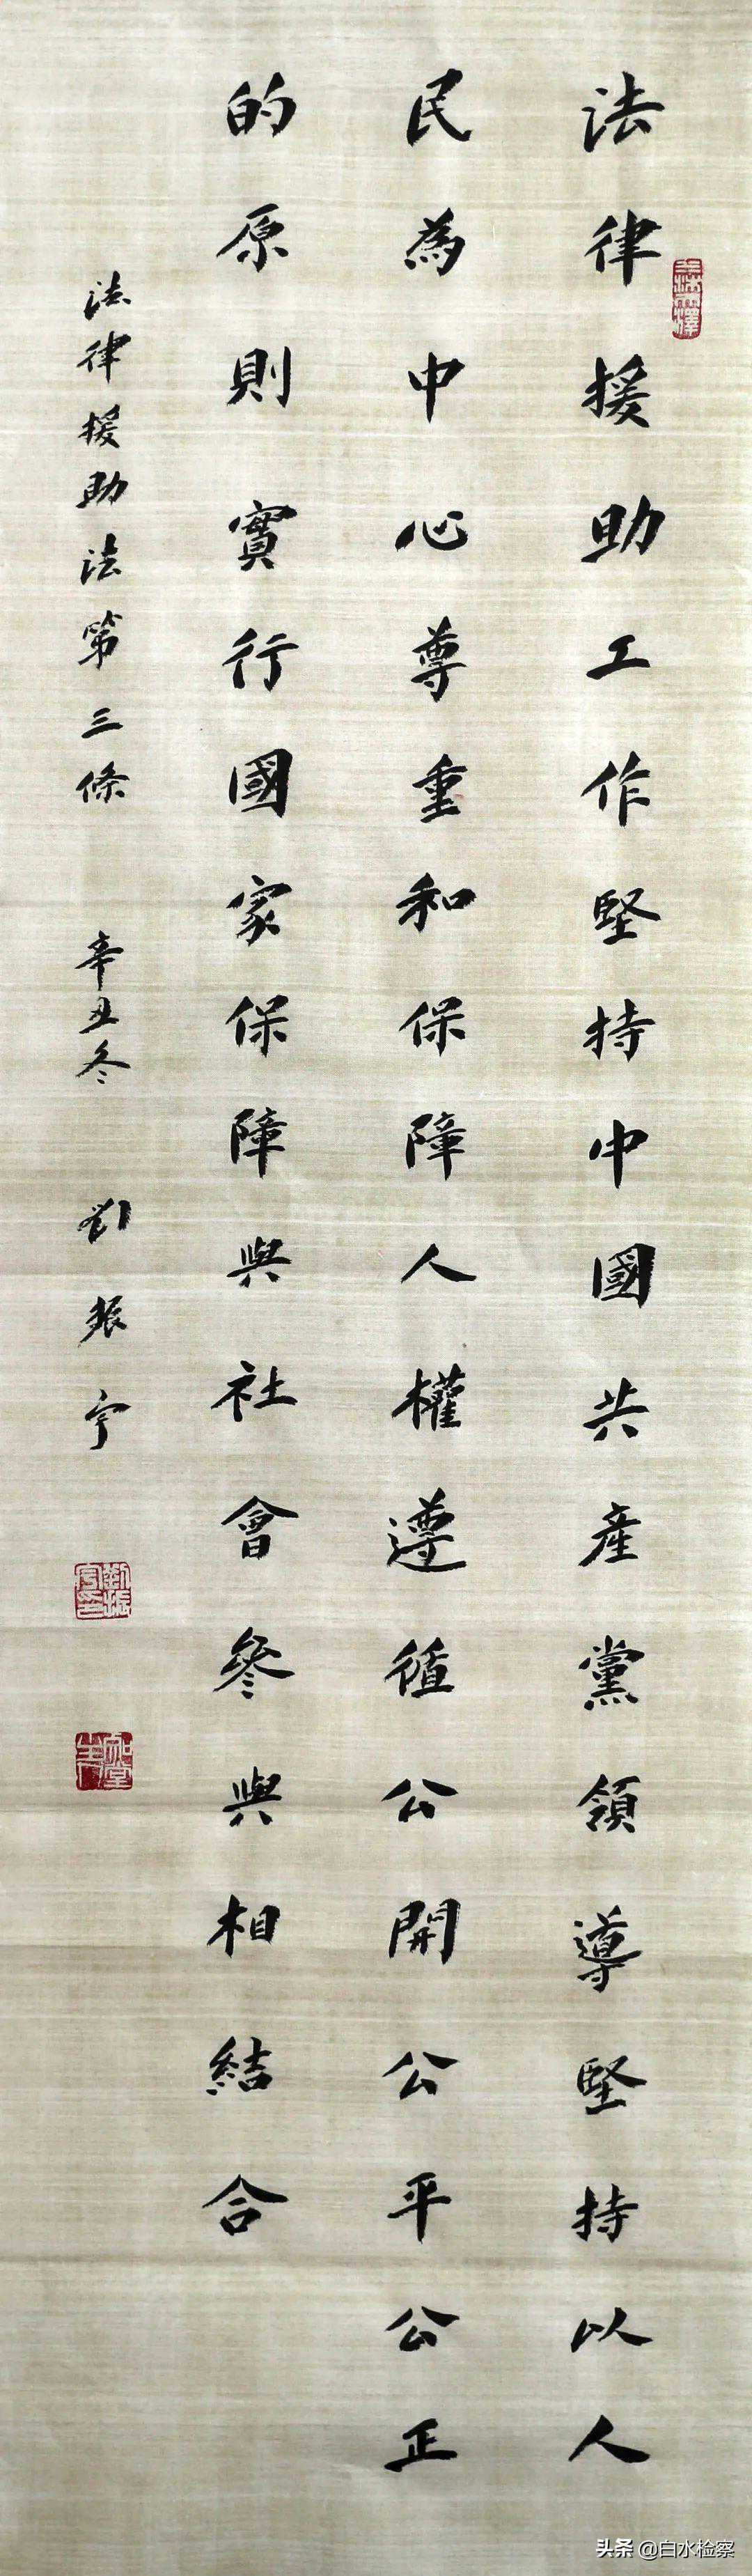 法律援助工作堅持中國共產黨領導堅持以人
民為中心尊重和保障人權遵循公開公平公正
的原則實行國家保障與社會參與相結合
法律援助法第三條 辛丑冬 劉振宇
劉振宇印
头条 @白水检察